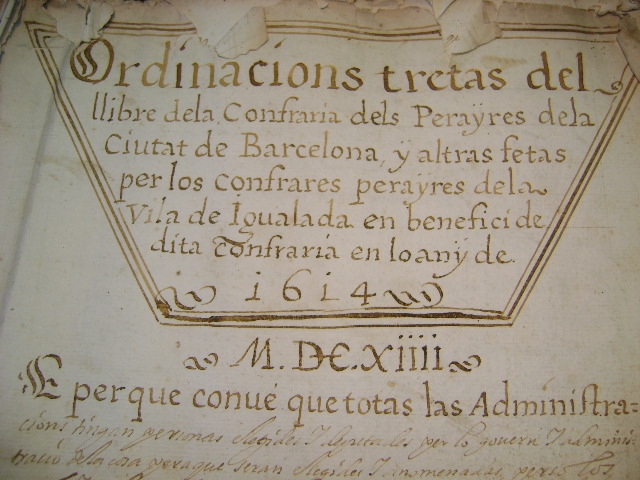 Ordinacions tretas del
llibre dela Confraria dels Perayres dela
Ciutat de Barcelona, y altras fetas
per los confrares perayres dela
Vila de Igualada en benefici de
dita Confraria en lo any de
1614
M.DC.XIIII.
E perque conué que totas las Administra=
cions tingan personas elegides I deputades per lo govern I adminis
tració de la cosa pera que seran elegides I anomenadas, perço los